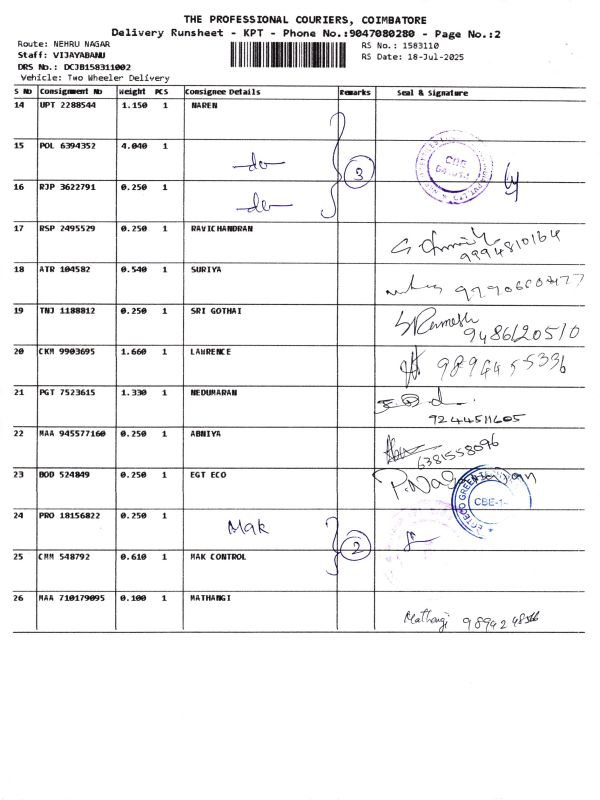 THE PROFESSIONAL COURIERS, COIMBATORE
Delivery Runsheet - KPT - Phone No.:9047080280 - Page No.:2
Route: NEHRU NAGAR
Staff: VIJAYABANU
DRS No.: DCJB158311002
Vehicle: Two Wheeler Delivery
RS No.: 1583110
RS Date: 18-Jul-2025
S No Consignment No Weight PCS Consignee Details Remarks Seal & Signature
14 UPT 2288544 1.150 1 NAREN
15 POL 6394352 4.040 1 -do- 3 CBE
16 RJP 3622791 0.250 1 -do-
17 RSP 2495529 0.250 1 RAVICHANDRAN 9994810164
18 ATR 104582 0.540 1 SURIYA
19 TNJ 1188812 0.250 1 SRI GOTHAI S Ramesh 9486120510
20 CKM 9903695 1.660 1 LAWRENCE 9894455336
21 PGT 7523615 1.330 1 NEDUMARAN 9244511605
22 MAA 945577160 0.250 1 ABNIYA 6381558096
23 BOD 524849 0.250 1 EGT ECO CBE-1
24 PRO 18156822 0.250 1 Mak 2
25 CMM 548792 0.610 1 MAK CONTROL
26 MAA 710179095 0.100 1 MATHANGI Mathangi